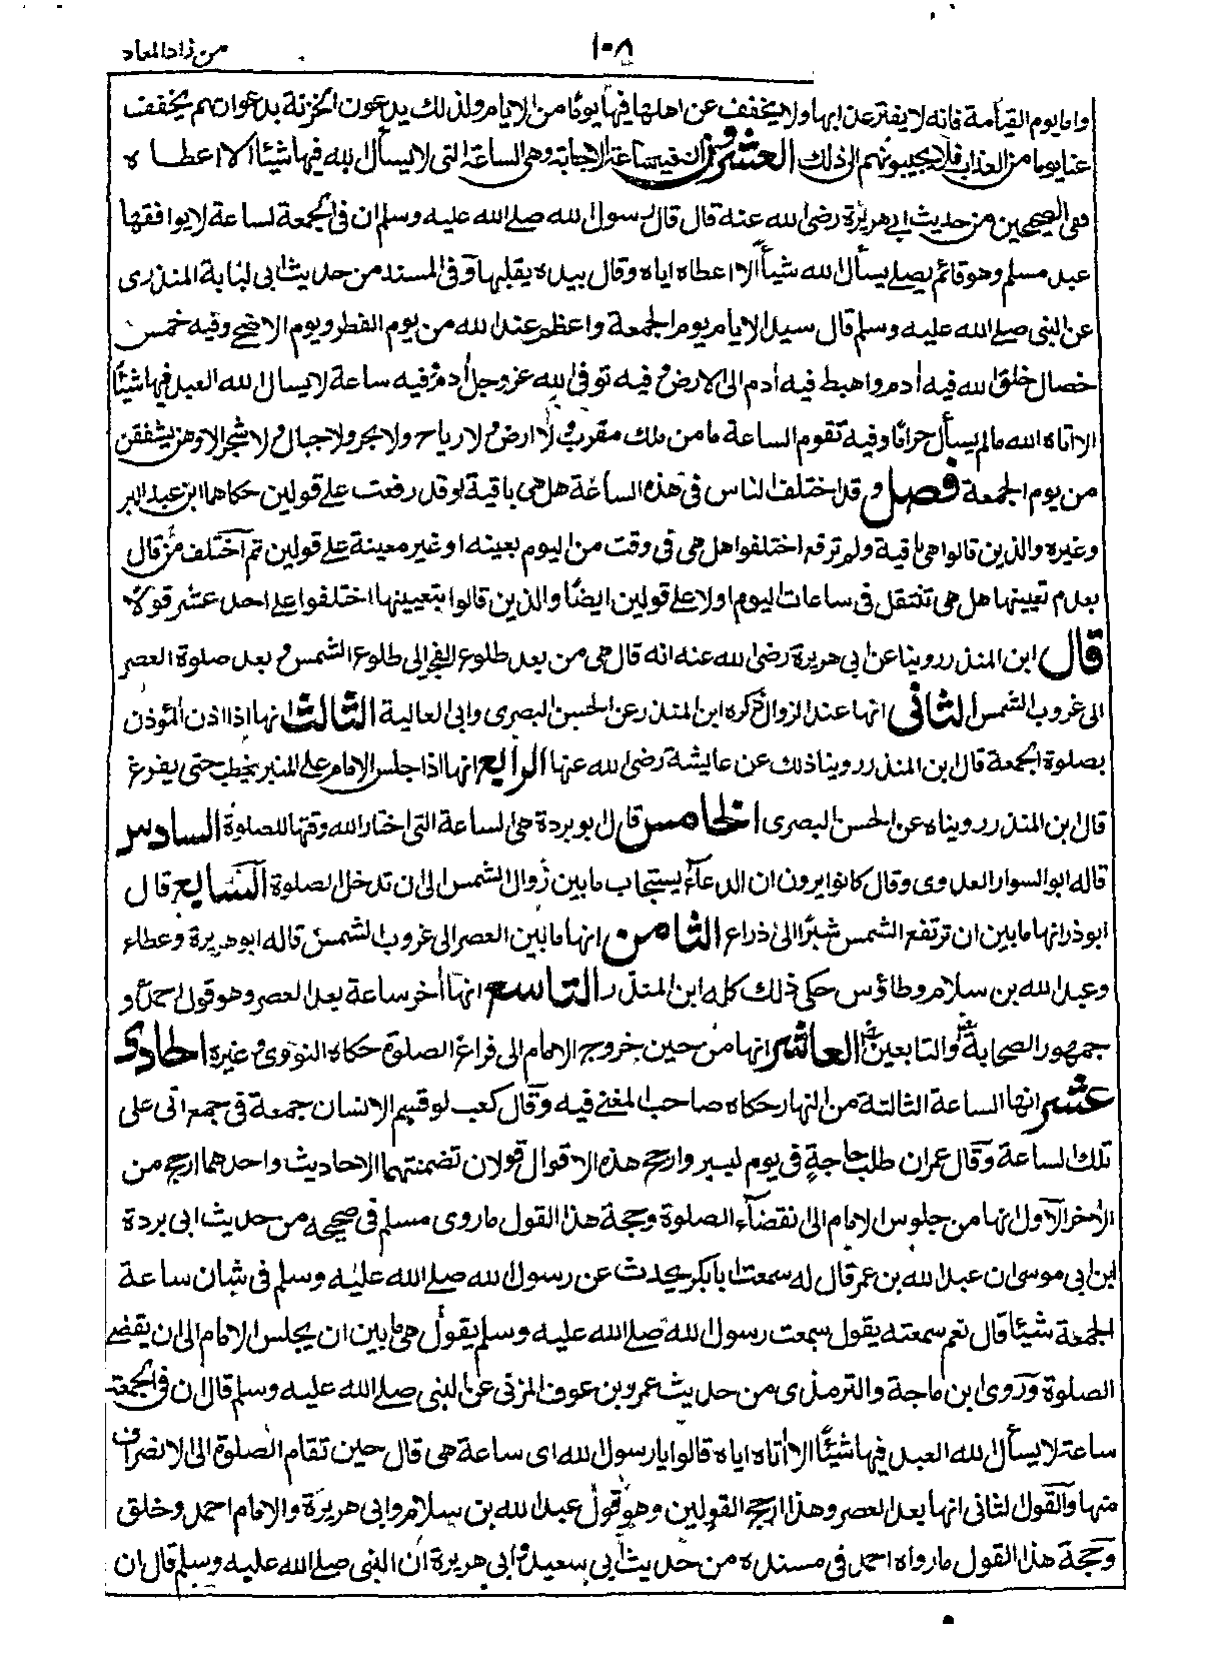 ١٠٨
من زاد المعاد
واما يوم القيامة فانه لا يفتر عذابها ولا يخفف عن اهلها فيها يومًا من الايام ولذلك يدعون الخزنة يدعوان بهم يخفف
عنا يوما من العذاب فلا يجيبونهم الى ذلك العشرون ان فيه ساعة الاجابة وهى الساعة التى لا يسأل الله فيها شيئا الا اعطاه
ففى الصحيحين من حديث ابى هريرة رضى الله عنه قال قال رسول الله صلے الله عليه وسلم ان فى الجمعة لساعة لا يوافقها
عبد مسلم وهو قائم يصلے يسأل الله شيأً الا اعطاه اياه وقال بيده يقلبها وفى المسند من حديث ابى لبابة المنذرى
عن النبى صلے الله عليه وسلم قال سيد الايام يوم الجمعة واعظم عند الله من يوم الفطر ويوم الاضحے وفيه خمس
خصال خلق الله فيه أدم واهبط فيه أدم الى الارض وفيه توفى الله عزوجل أدم وفيه ساعة لا يسال الله العبد فيها شيئًا
الا اتاه الله مالم يسأل حرامًا وفيه تقوم الساعة مامن ملك مقرب ولا ارض ولا رياح ولا بحر ولا جبال ولا شجر الا وهن يشفقن
من يوم الجمعة فصل وقد اختلف الناس فى هذه الساعة هل هى باقية او قد رفعت على قولين حكاهما ابن عبد البر
وغيره والذين قالوا هى باقية ولم ترفع اختلفوا هل هى فى وقت من اليوم بعينه او غير معينة على قولين ثم اختلف من قال
بعدم تعيينها هل هى تنتقل فى ساعات اليوم اولا على قولين ايضًا والذين قالوا بتعيينها اختلفوا على احد عشر قولًا
قال ابن المنذر روينا عن ابى هريرة رضى الله عنه انه قال هى من بعد طلوع الفجر الى طلوع الشمس و بعد صلوة العصر
الى غروب الشمس الثانى انها عند الزوال ذكره ابن المنذر عن الحسن البصرى وابى العالية الثالث انها اذا اذن المؤذن
بصلوة الجمعة قال ابن المنذر روينا ذلك عن عايشة رضى الله عنها الرابع انها اذا جلس الامام على المنبر يخطب حتى يفرغ
قال ابن المنذر رويناه عن الحسن البصرى الخامس قال ابو بردة هى الساعة التى اختار الله وقتها للصلوة السادس
قاله ابو السوار العدوى وقال كانوا يرون ان الدعاء يستجاب ما بين زوال الشمس الى ان تدخل الصلوة السابع قال
ابوذر انها مابين ان ترتفع الشمس شبرًا الى ذراع الثامن انها مابين العصر الى غروب الشمس قاله ابو هريرة وعطاء
وعبد الله بن سلام وطاؤس حكى ذلك كله ابن المنذر التاسع انها أخر ساعة بعد العصر وهو قول احمد و
جمهور الصحابة والتابعين العاشر انها من حين خروج الامام الى فراغ الصلوة حكاه النووى وغيره الحادى
عشر انها الساعة الثالثة من النهار حكاه صاحب المغنے فيه وقال كعب لو قسم الانسان جمعة فى جمع اتى على
تلك الساعة وقال عمر ان طلب حاجةٍ فى يوم ليسير وارجح هذه الاقوال قولان تضمنتهما الاحاديث واحدهما ارجح من
الأخر الاول انها من جلوس الامام الى انقضاء الصلوة وحجة هذا القول ماروى مسلم فى صحيحه من حديث ابى بردة
ابن ابى موسى ان عبد الله بن عمر قال له سمعت ابا بكر يحدث عن رسول الله صلے الله عليه وسلم فى شان ساعة
الجمعة شيئا قال نعم سمعته يقول سمعت رسول الله صلے الله عليه وسلم يقول هى مابين ان يجلس الامام الى ان يقضے
الصلوة وروى ابن ماجة والترمذى من حديث عمرو بن عوف المزنى عن النبى صلے الله عليه وسلم قال ان فى الجمعة
ساعة لا يسأل الله العبد فيها شيئًا الا أتاه اياه قالوا يا رسول الله اى ساعة هى قال حين تقام الصلوة الى الانصراف
منها والقول الثانى انها بعد العصر وهذا ارجح القولين وهو قول عبد الله بن سلام وابى هريرة والامام احمد وخلق
وحجة هذا القول مارواه احمد فى مسنده من حديث ابى سعيد و ابى هريرة ان النبى صلے الله عليه وسلم قال ان